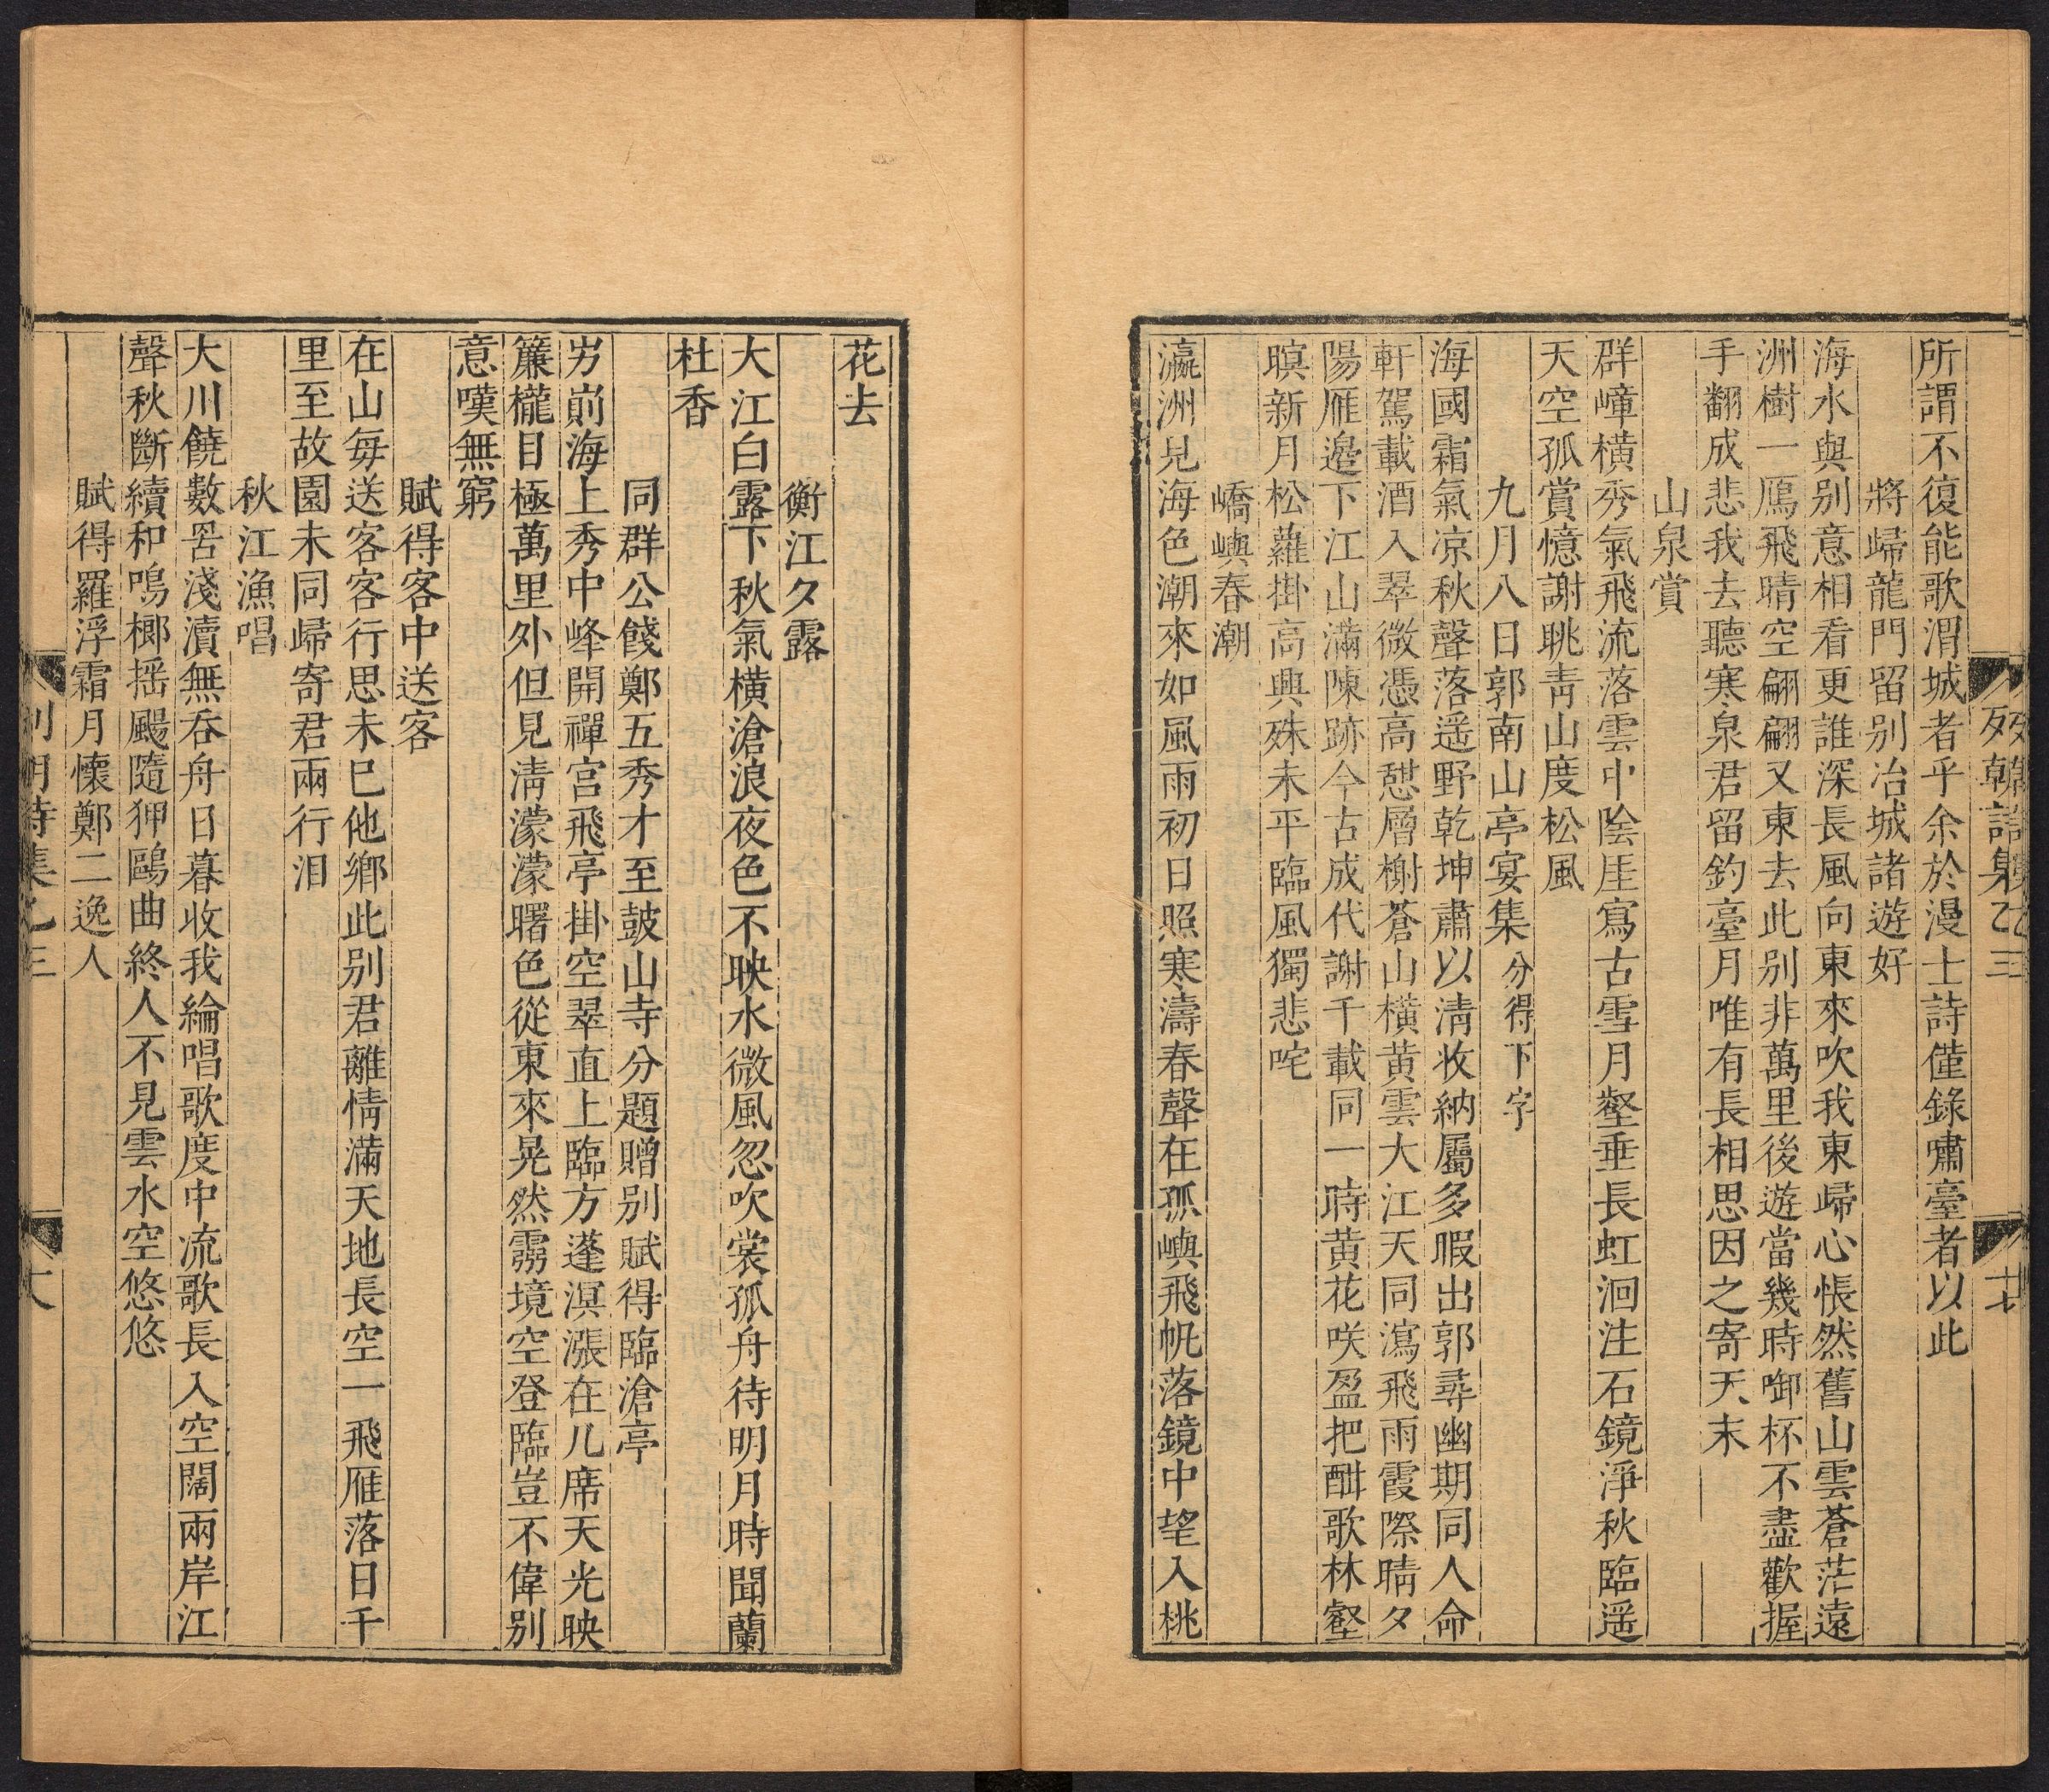 列朝詩集乙三
十七
所謂不復能歌渭城者乎余於漫士詩僅錄嘯臺者以此
將歸龍門留别冶城諸遊好
海水與别意相看更誰深長風向東來吹我東歸心悵然舊山雲蒼茫遠
洲樹一鴈飛晴空翩翩又東去此别非萬里後遊當幾時啣杯不盡歡握
手翻成悲我去聽寒泉君留釣臺月唯有長相思因之寄天末
山泉賞
群嶂橫秀氣飛流落雲中陰厓寫古雪月壑垂長虹洄注石鏡淨秋臨遥
天空孤賞憶謝眺靑山度松風
九月八日郭南山亭宴集分得下字
海國霜氣凉秋聲落遥野乾坤肅以淸收納屬多暇出郭尋幽期同人命
軒駕載酒入翠微憑高憇層榭蒼山橫黄雲大江天同瀉飛雨霞際晴夕
陽雁邉下江山滿陳跡今古成代謝千載同一時黄花咲盈把酣歌林壑
暝新月松蘿掛高興殊未平臨風獨悲咤
嶠嶼春潮
瀛洲見海色潮來如風雨初日照寒濤春聲在孤嶼飛帆落鏡中望入桃
花去
衡江夕露
大江白露下秋氣橫滄浪夜色不映水微風忽吹裳孤舟待明月時聞蘭
杜香
同群公餞鄭五秀才至鼓山寺分題贈别賦得臨滄亭
岃崱海上秀中峰開禪宫飛亭掛空翠直上臨方蓬溟漲在几席天光映
簾櫳目極萬里外但見淸濛濛曙色從東來晃然霧境空登臨豈不偉别
意嘆無窮
賦得客中送客
在山毎送客客行思未已他鄉此别君離情滿天地長空一飛雁落日千
里至故園未同歸寄君兩行泪
秋江漁唱
大川饒數罟淺瀆無吞舟日暮收我綸唱歌度中流歌長入空闊兩岸江
聲秋斷續和鳴榔揺颺隨狎鷗曲終人不見雲水空悠悠
賦得羅浮霜月懷鄭二逸人
列朝詩集乙三